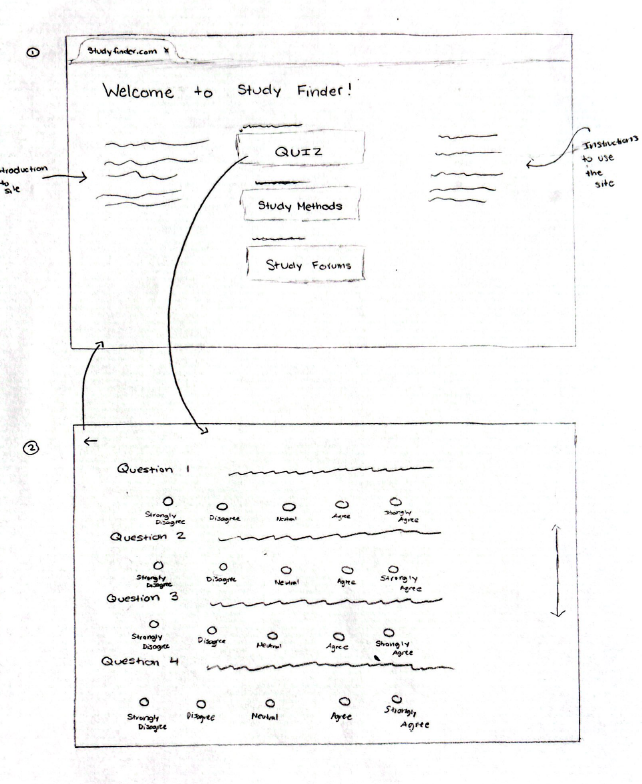 ①
Studyfinder.com x
Welcome to Study Finder!
troduction
to
site
QUIZ
Study Methods
Study Forums
Instructions
to use
the
site
②
←
Question 1
Strongly
Disagree
Disagree
Neutral
Agree
Strongly
Agree
Question 2
Strongly
Disagree
Disagree
Neutral
Agree
Strongly
Agree
Question 3
Strongly
Disagree
Disagree
Neutral
Agree
Strongly
Agree
Question 4
Strongly
Disagree
Disagree
Neutral
Agree
Strongly
Agree